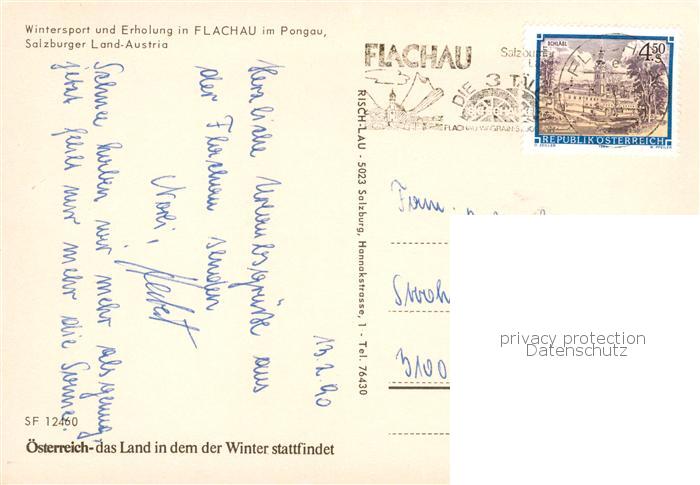 Wintersport und Erholung in FLACHAU im Pongau,
Salzburger Land-Austria
13.2.90
Herzliche Urlaubsgrüße aus
der Flachau senden
Schnee haben wir mehr als genug,
jetzt fehlt nur mehr die Sonne.
SF 12460
Österreich-das Land in dem der Winter stattfindet
RISCH-LAU - 5023 Salzburg, Hannakstrasse, 1 - Tel. 76430
FLACHAU
DIE 3 TÄ
FLACHAU WAGRAIN ST.JO
SCHLÄGL
4.50
S
REPUBLIK ÖSTERREICH
O. ZEILLER
W. PFEILER
3100
privacy protection
Datenschutz